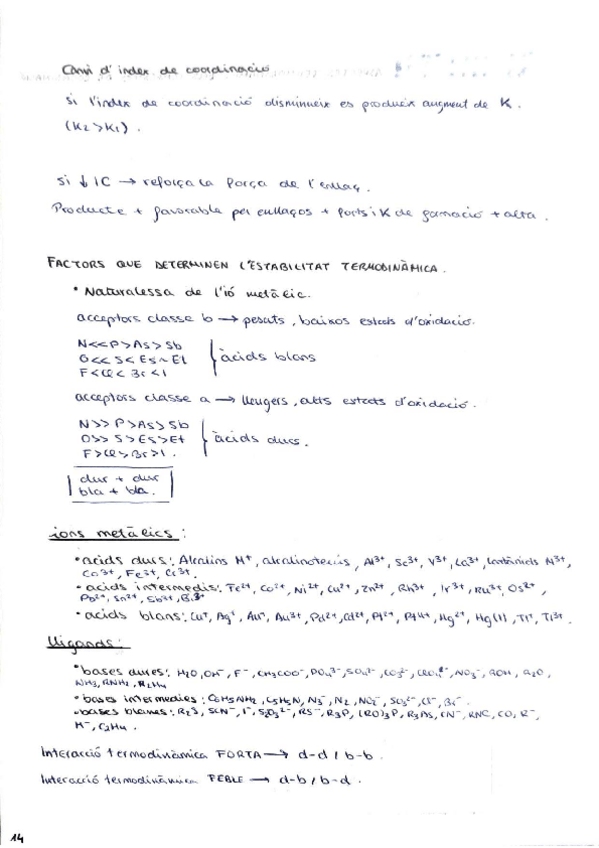 Canvi d'índex de coordinació
Si l'índex de coordinació disminueix es produeix augment de K.
(K2>K1).
Si ↓ IC → reforça la força de l'enllaç.
Producte + favorable per enllaços + forts i K de formació + alta.
FACTORS QUE DETERMINEN L'ESTABILITAT TERMODINÀMICA.
• Naturalessa de l'ió metàl·lic.
acceptors classe b → pesats, baixos estats d'oxidació.
N<<P>As>Sb
O<< S< Es~ Et
F<Cl< Br<I
àcids blans
acceptors classe a → lleugers, alts estats d'oxidació.
N>> P>As>Sb
O>> S>Es>Et
F>Cl>Br>I.
àcids durs.
dur + dur
bla + bla.
ions metàl·lics:
• àcids durs: Alcalins M+, alcalinoterris, Al3+, Sc3+, Y3+, La3+, lantànids M3+,
Co3+, Fe3+, Cr3+.
• àcids intermedis: Fe2+, Co2+, Ni2+, Cu2+, Zn2+, Rh3+, Ir3+, Ru3+, Os2+,
Pb2+, Sn2+, Sb3+, Bi3+
• àcids blans: Cu+, Ag+, Au+, Au3+, Pd2+, Cd2+, Pt2+, Pt4+, Hg2+, Hg(I), Tl+, Tl3+.
Lligands:
• bases dures: H2O, OH-, F-, CH3COO-, PO4 3-, SO4 2-, CO3 2-, ClO4-, NO3-, ROH, R2O,
NH3, RNH2, N2H4
• bases intermedies: C6H5NH2, C5H5N, N3-, N2, NO2-, SO3 2-, Cl-, Br-.
• bases blanes: R2S, SCN-, I-, S2O3 2-, RS-, R3P, (RO)3P, R3As, CN-, RNC, CO, R-,
H-, C2H4.
Interacció termodinàmica FORTA → d-d / b-b.
Interacció termodinàmica FEBLE → d-b / b-d.
14